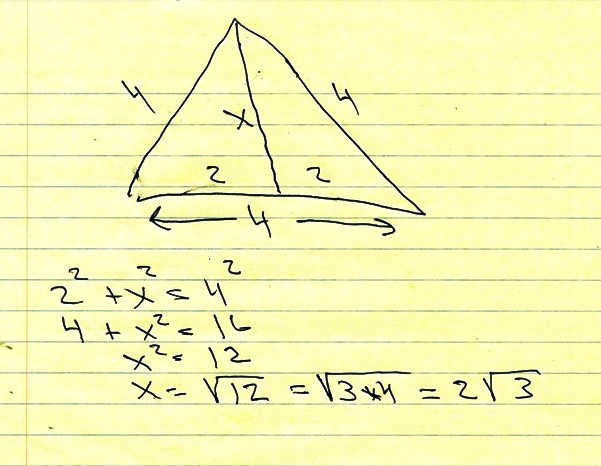 4 4
x
2 2
4
2² + x² = 4²
4 + x² = 16
x² = 12
x = √12 = √3*4 = 2√3